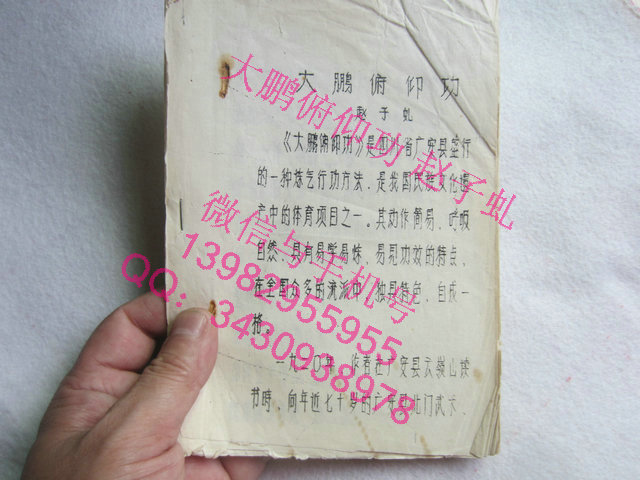 大鹏俯仰功
赵子虬
《大鹏俯仰功》是四川省广安县盛行
的一种炼气行功方法，是我国民族文化遗
产中的体育项目之一。其动作简易，呼吸
自然，具有易学易炼，易见功效的特点，
在全国众多的流派中，独具特色，自成一
格。
一九二〇年，作者在广安县天池山读
书时，向年近七十岁的广安县北门武术、
大鹏俯仰功 赵子虬
微信与手机号
13982955955
QQ：3430938978